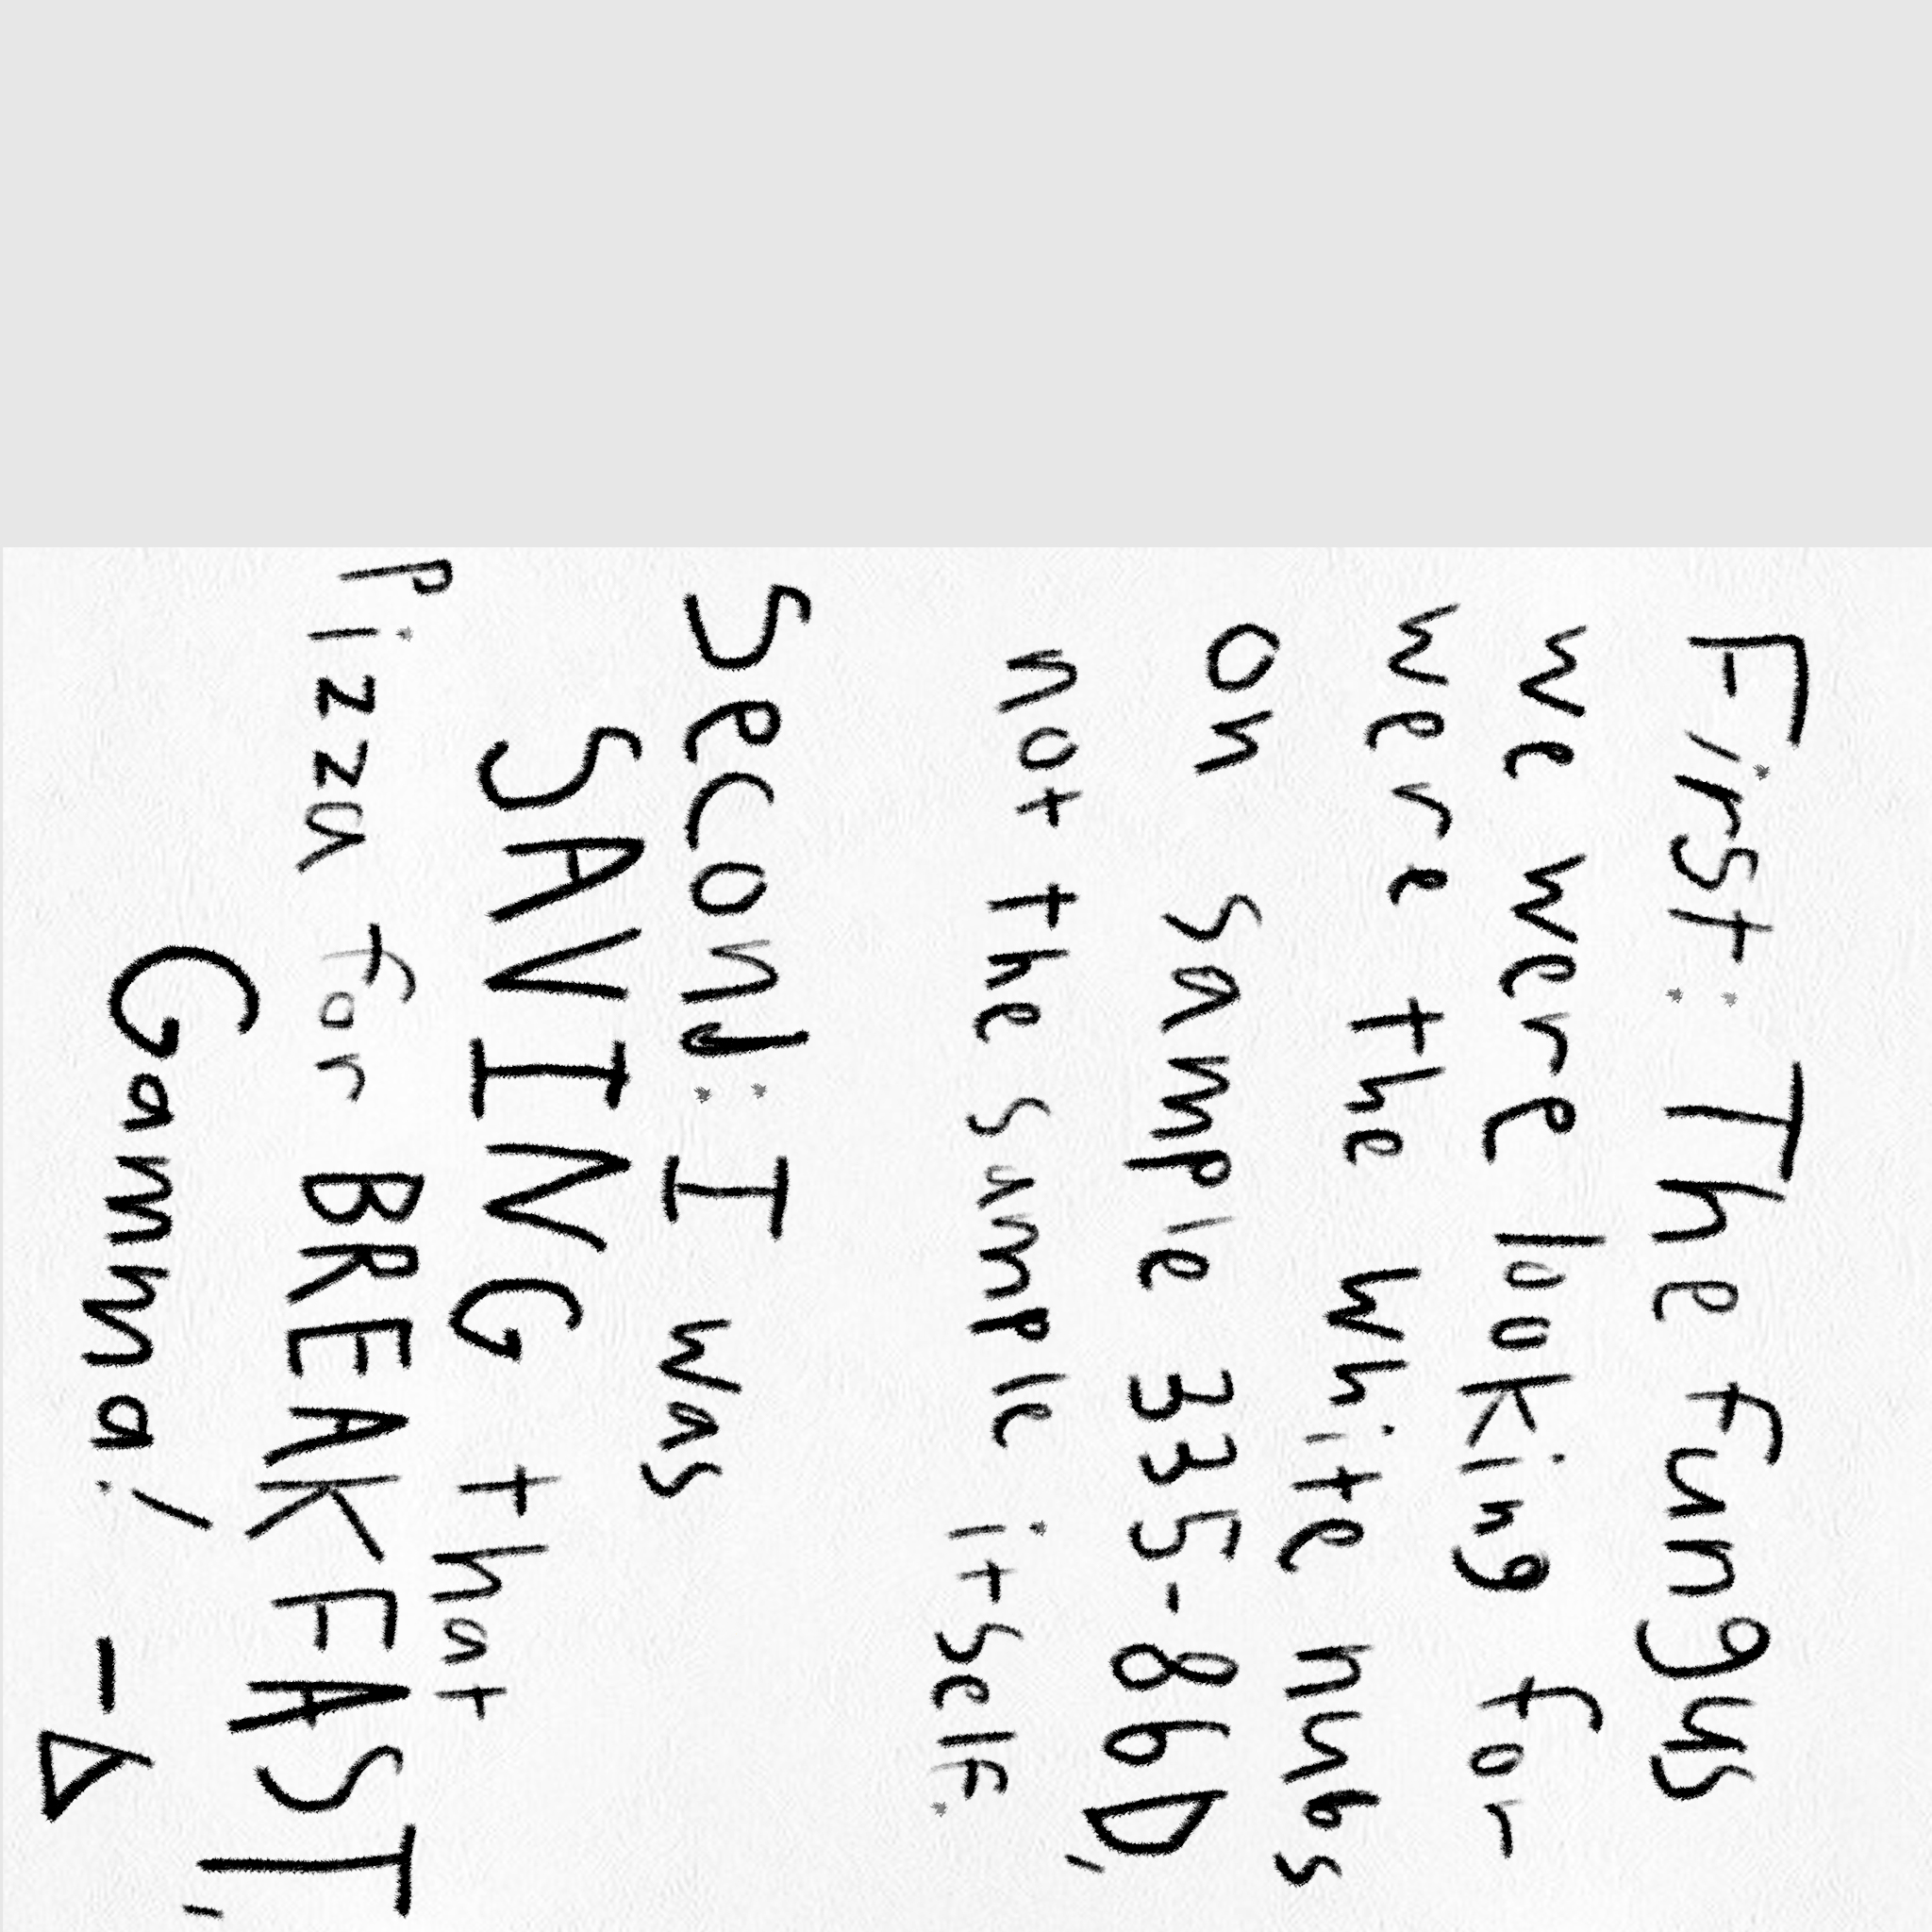 First: The fungus
we were looking for
were the white nubs
on sample 335-86D,
not the sample itself.
Second: I was
SAVING that
Pizza for BREAKFAST,
Gamma! -Δ